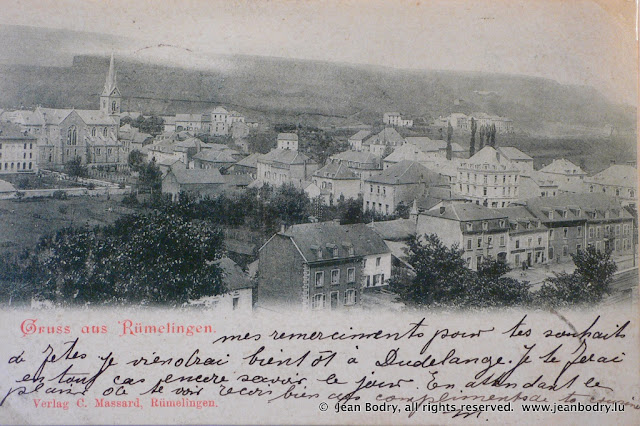 Gruss aus Rümelingen.
mes remerciments pour tes souhaits
de fêtes je viendrai bientôt à Dudelange. Je te ferai
en tout cas encore savoir le jour. En attendant le
plaisir de te voir reçois bien des compliments de ta
Verlag C. Massard, Rümelingen.
© Jean Bodry, all rights reserved. www.jeanbodry.lu